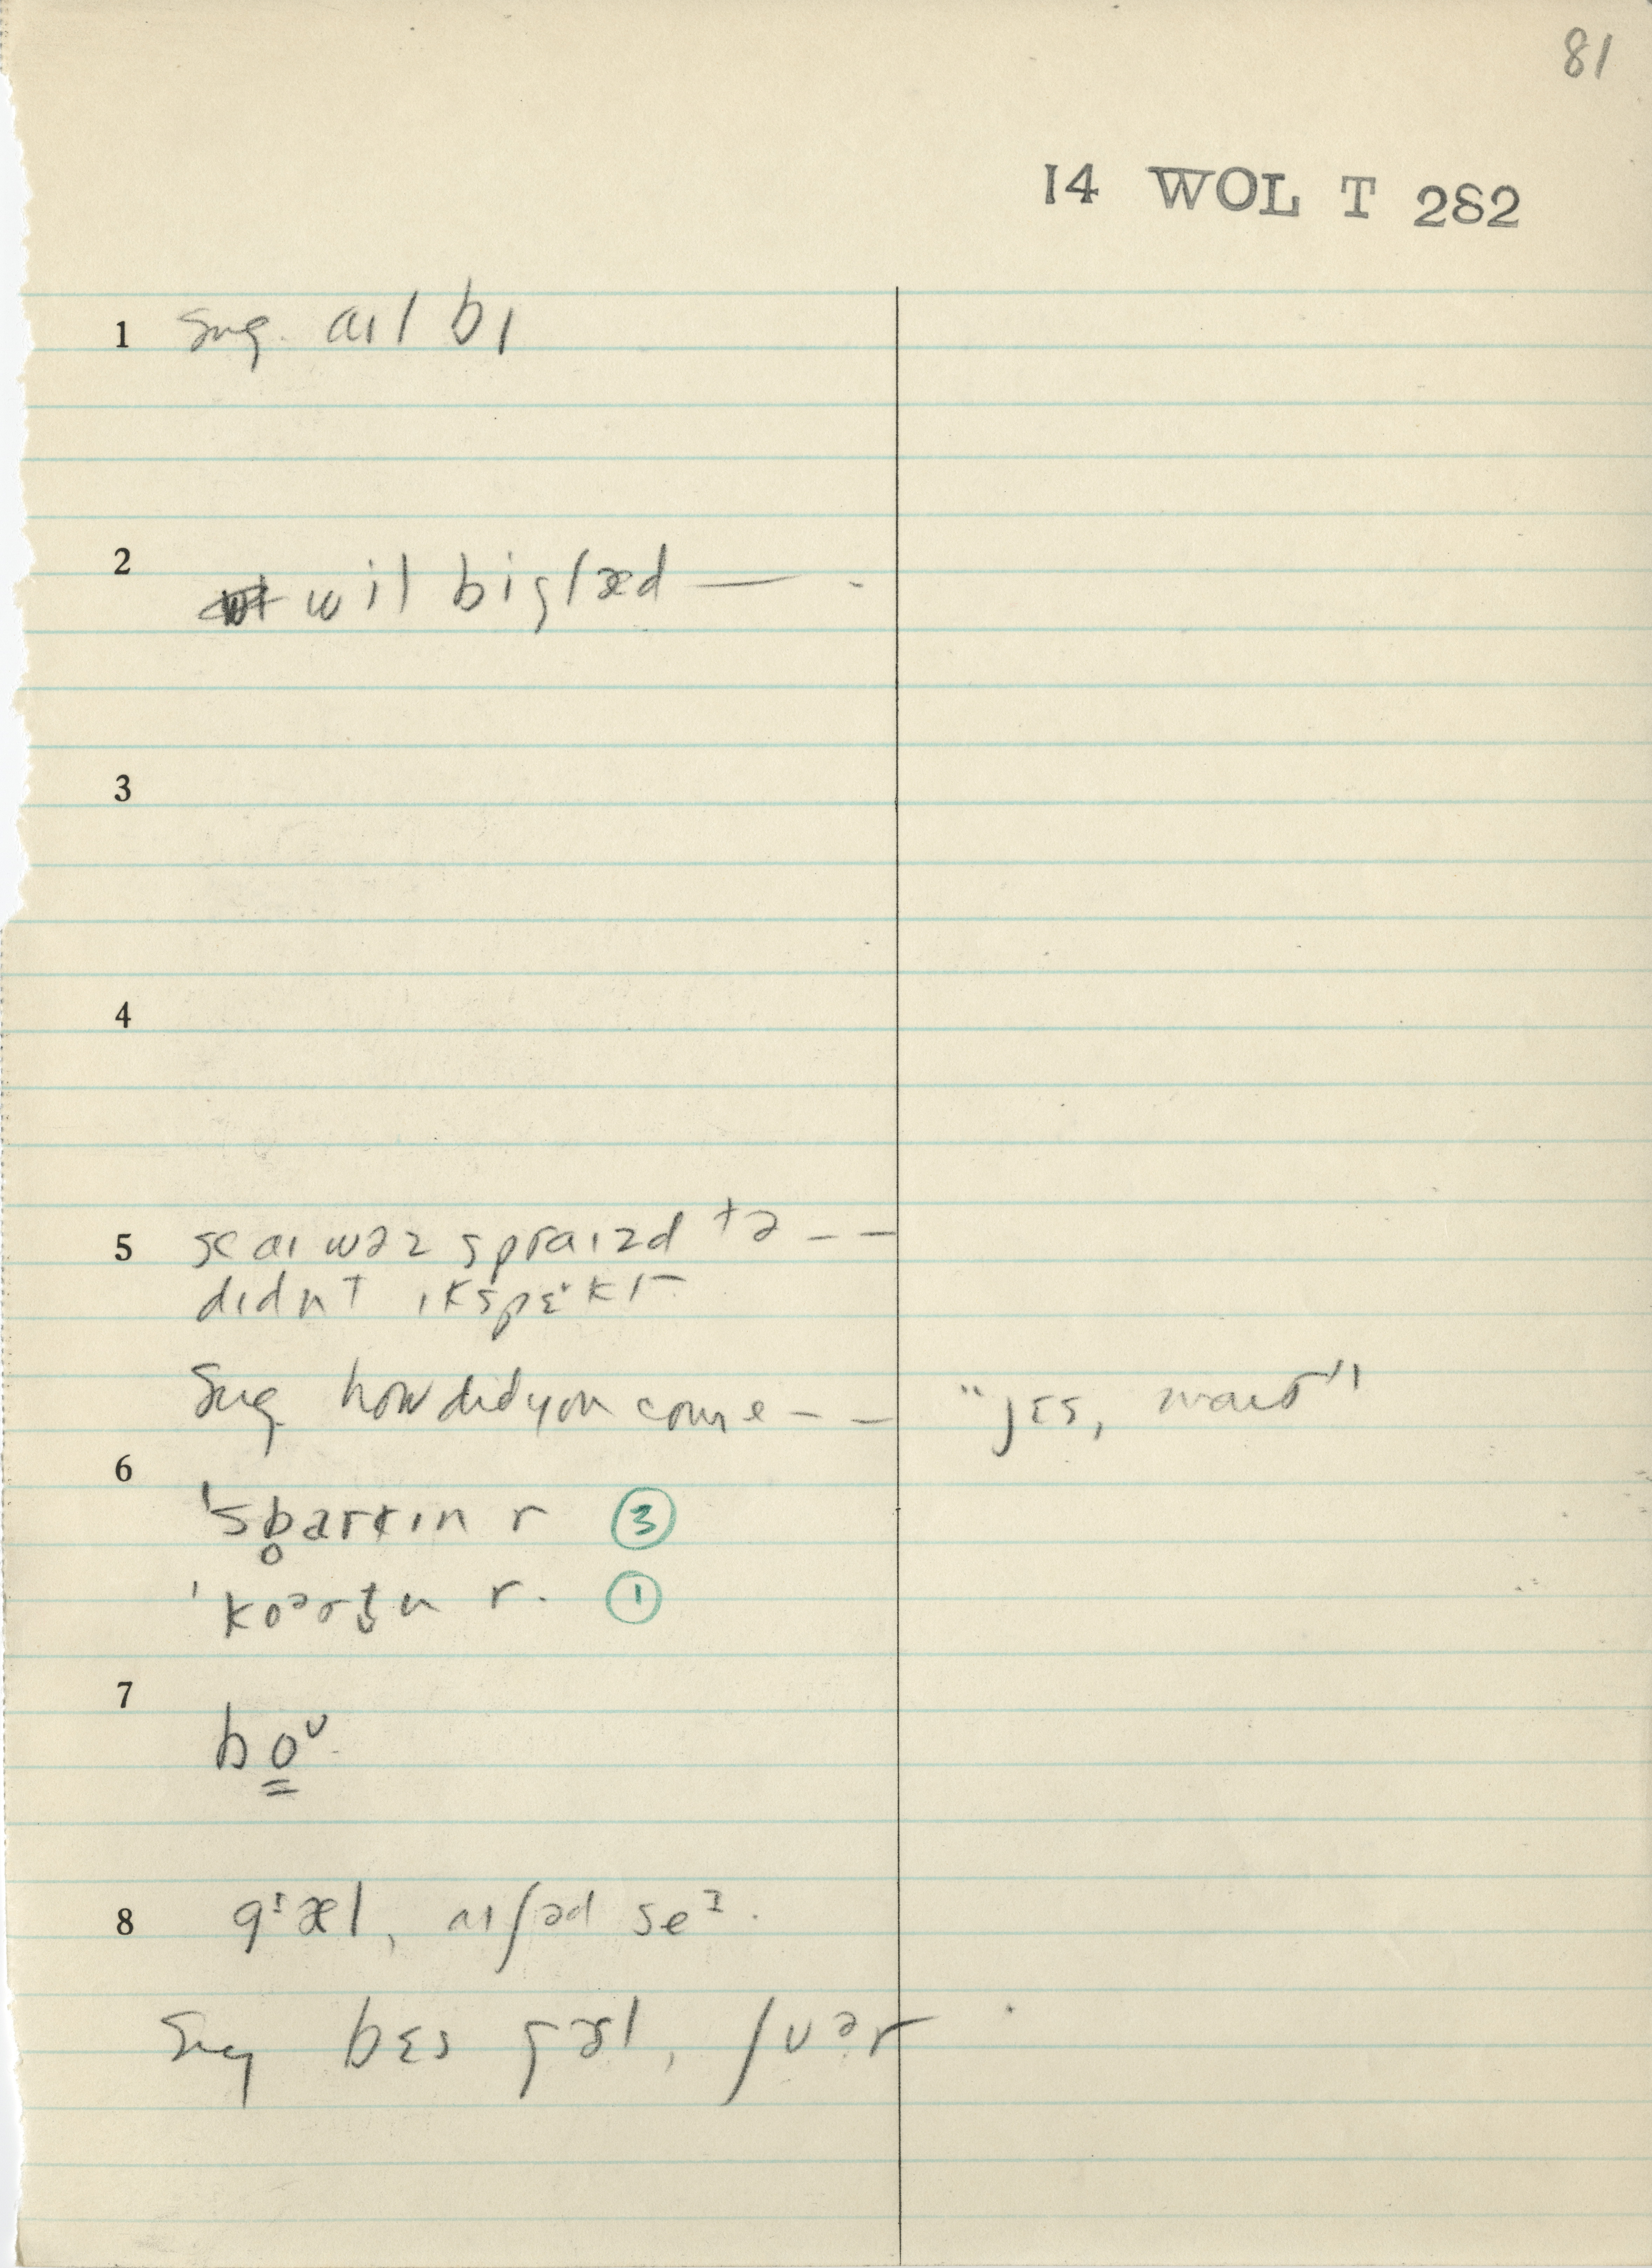 81
14 WOL T 282
1 Sug. aɪl bɪ
2 wil bi glæd — -
3
4
5 aɪ wəz spraɪzd tə – –
dɪdnt ɪkspɛkt
Sug. how did you come – – "jɛs,
6
ˈsb̥arkɪn r ③
r. ①
7
bo̳ᶷ
8 gᶦæl, aɪʃəd seᶦ.
Sug bɛs gæl, ʃuər